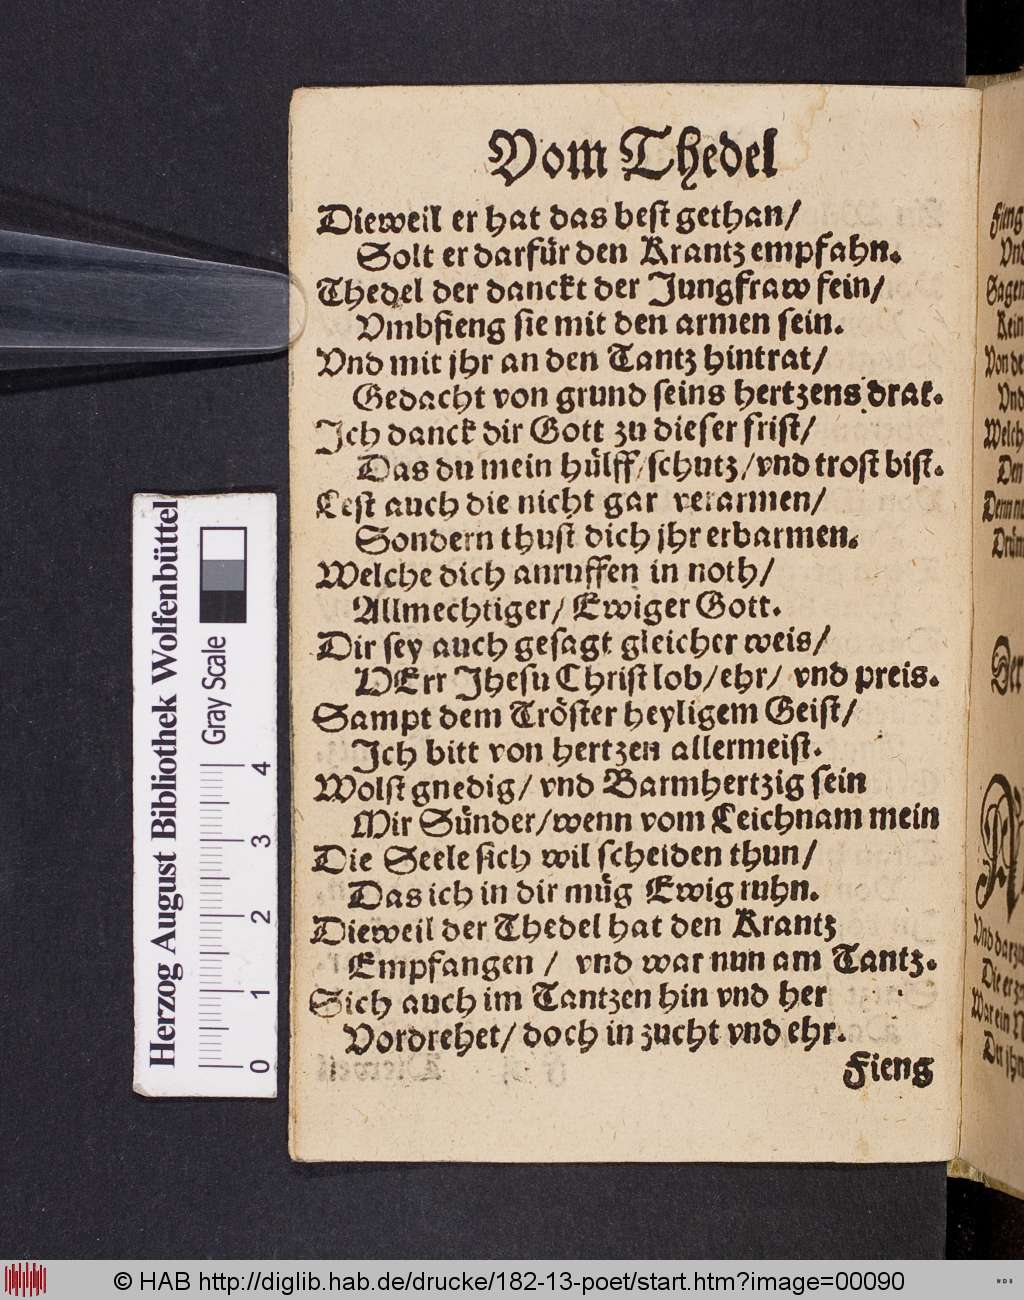 Vom Thedel
Dieweil er hat das best gethan/
Solt er darfür den Krantz empfahn.
Thedel der danckt der Jungfraw fein/
Vmbfieng sie mit den armen sein.
Vnd mit jhr an den Tantz hintrat/
Gedacht von grund seins hertzens drat.
Ich danck dir Gott zu dieser frist/
Das du mein hülff/schutz/vnd trost bist.
Lest auch die nicht gar verarmen/
Sondern thust dich jhr erbarmen.
Welche dich anruffen in noth/
Allmechtiger/ Ewiger Gott.
Dir sey auch gesagt gleicher weis/
HErr Jhesu Christ lob/ehr/ vnd preis.
Sampt dem Tröster heyligem Geist/
Ich bitt von hertzen allermeist.
Wolst gnedig/ vnd Barmhertzig sein
Mir Sünder/wenn vom Leichnam mein
Die Seele sich wil scheiden thun/
Das ich in dir müg Ewig ruhn.
Dieweil der Thedel hat den Krantz
Empfangen / vnd war nun am Tantz.
Sich auch im Tantzen hin vnd her
Vordrehet/ doch in zucht vnd ehr.
Fieng
Fieng
Vnd
Sagen
Kein
Von de
Vnd
Welch
Den
Denn
Der
Vnd darzu
Die er
War ein
Herzog August Bibliothek Wolfenbüttel
Gray Scale
0 1 2 3 4
© HAB http://diglib.hab.de/drucke/182-13-poet/start.htm?image=00090